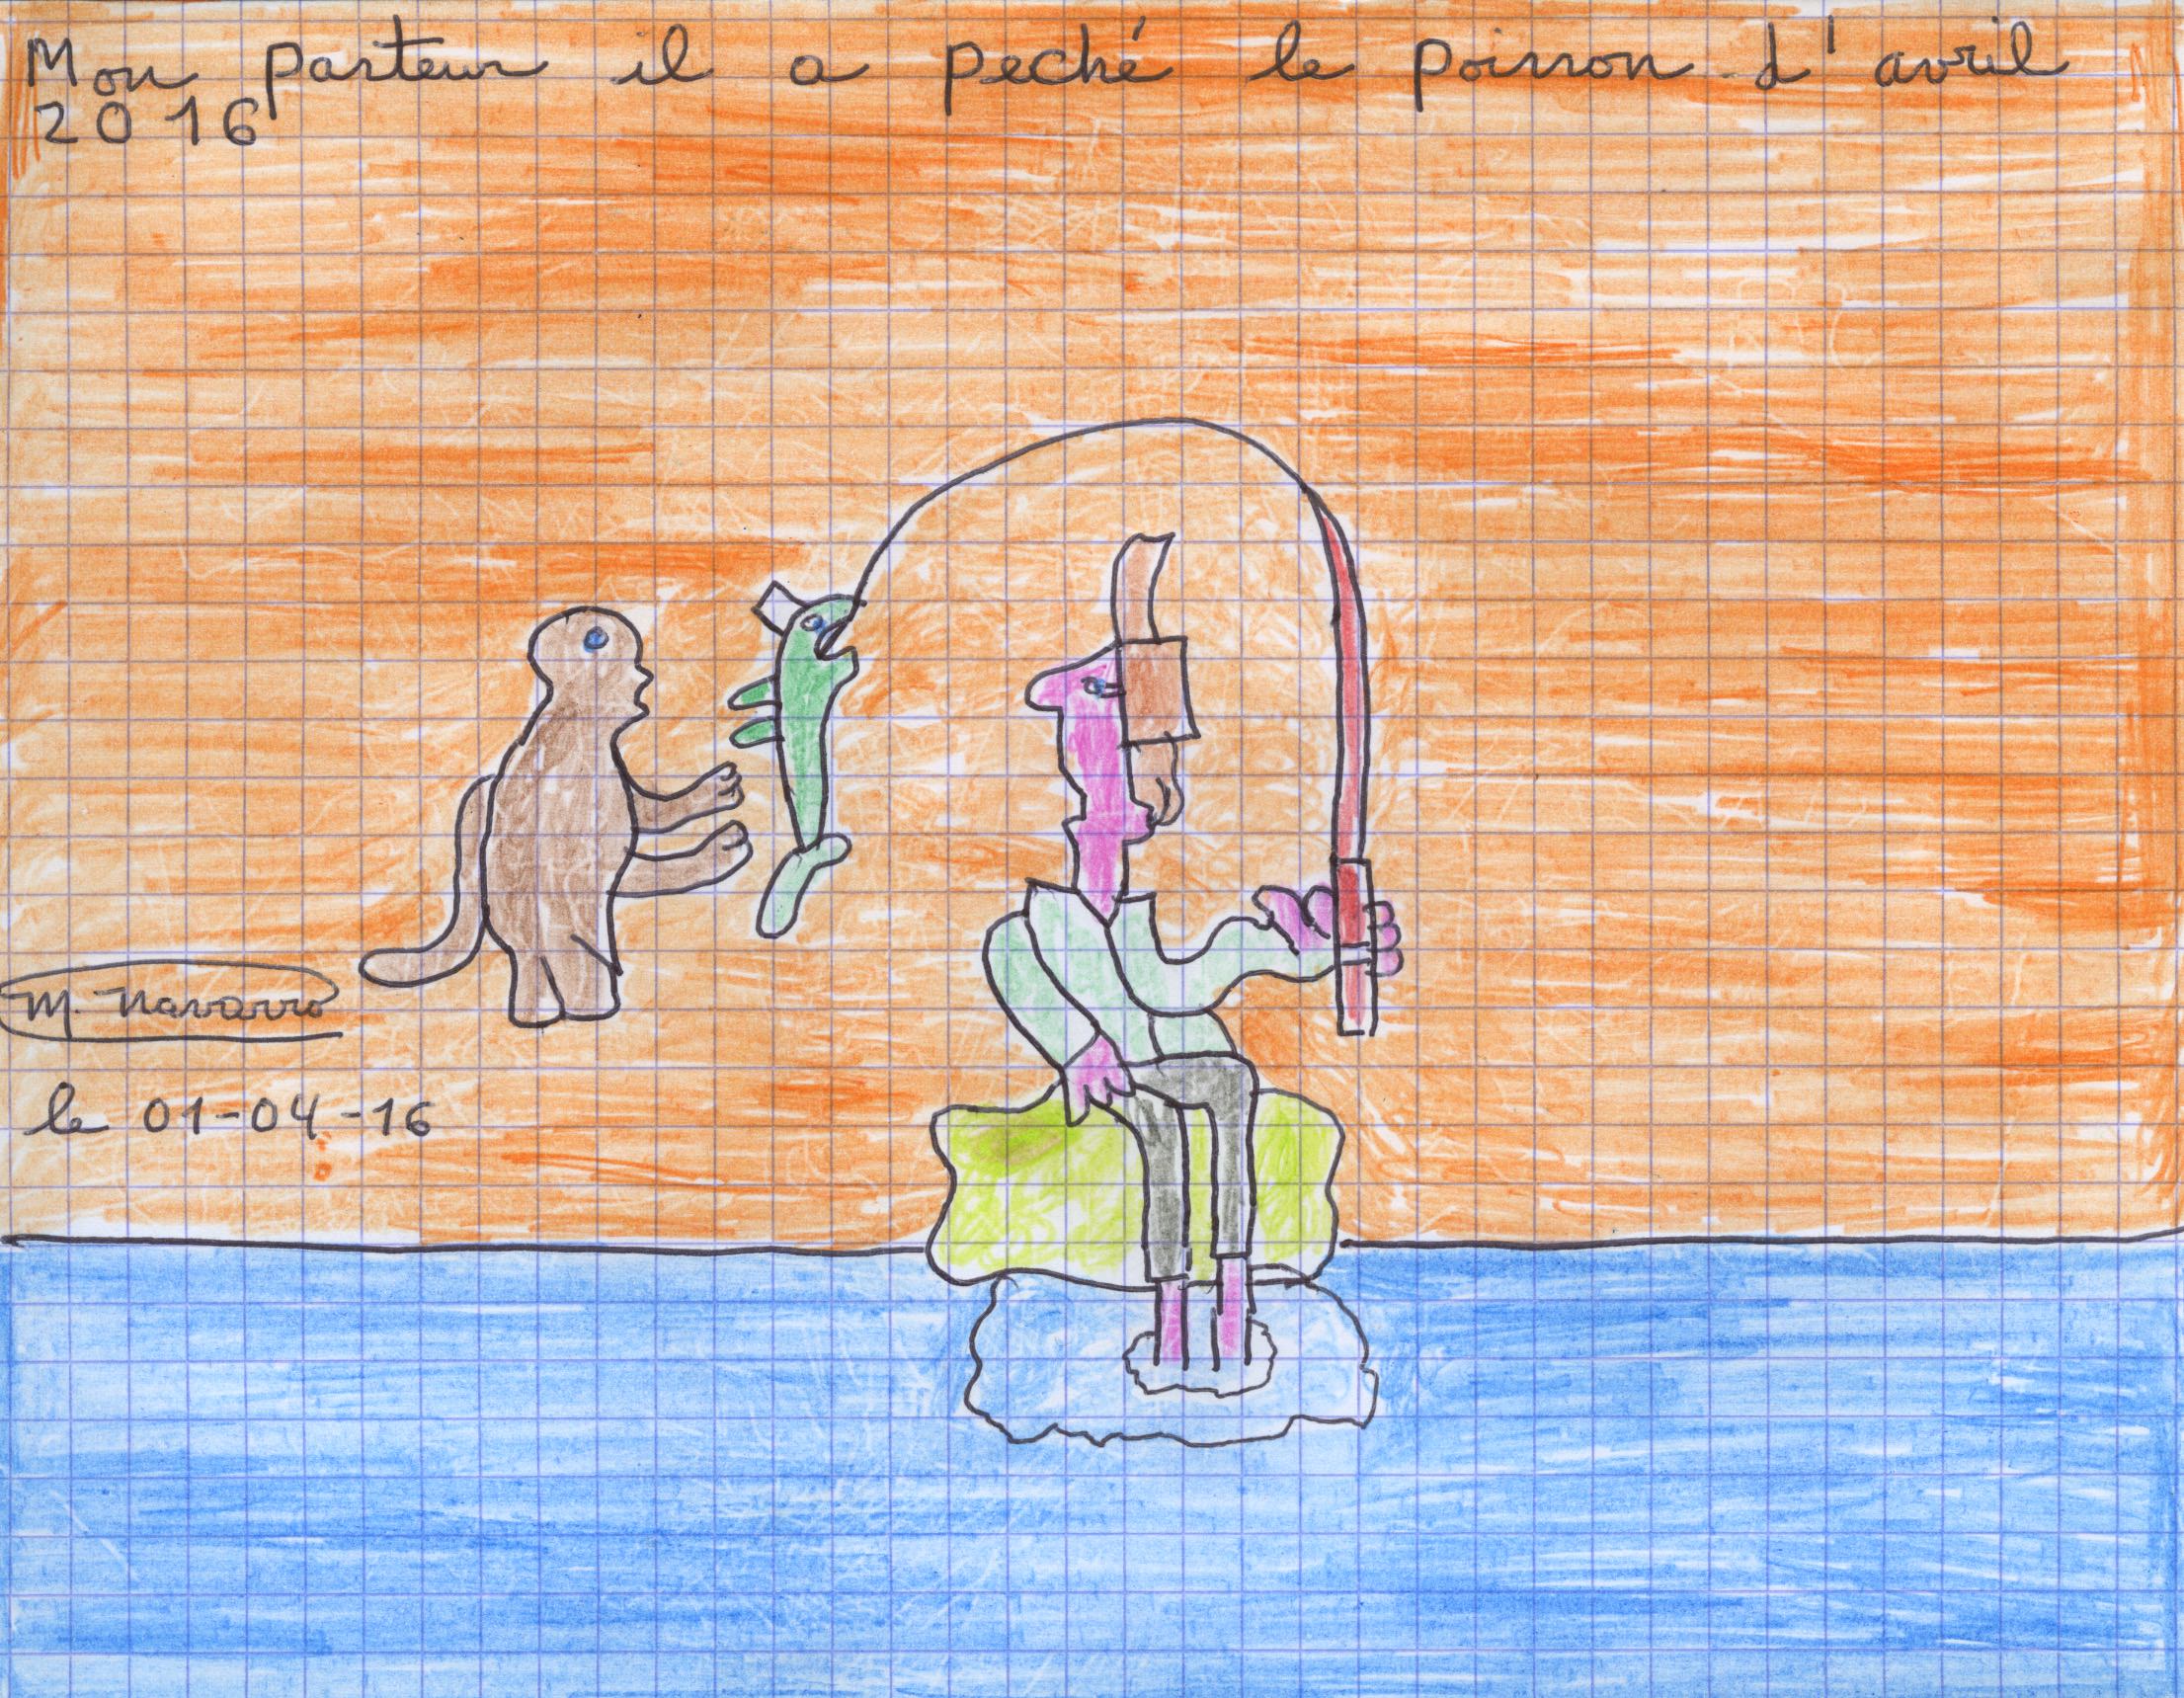 Mon pasteur il a peché le poisson d'avril
2016
M. Navarro
le 01-04-16